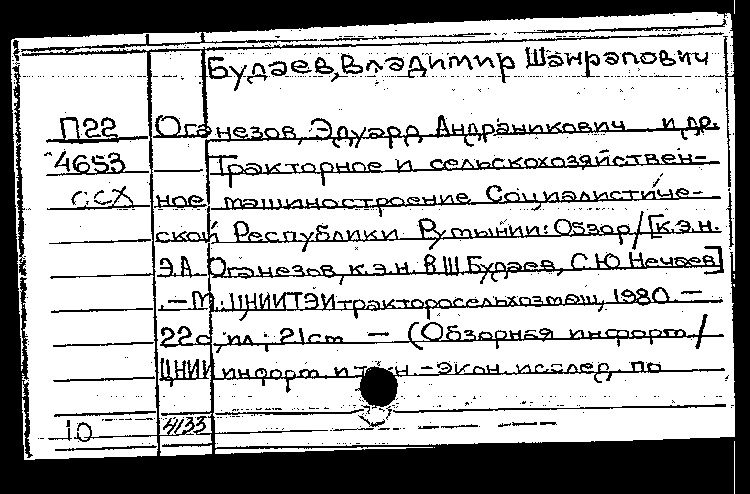 Будаев, Владимир Шанрапович
П22 Оганезов, Эдуард Андраникович и др.
4653 Тракторное и сельскохозяйствен-
ССХ ное машиностроение Социалистиче-
ской Республики Румынии: Обзор/[к.э.н.
Э.А. Оганезов, к.э.н. В.Ш. Будаев, С.Ю. Нечаев]
.–М.: ЦНИИТЭИтракторосельхозмаш, 1980.–
22с., ил; 21см – (Обзорная информ./
ЦНИИ информ. и исслед. по
10 4133